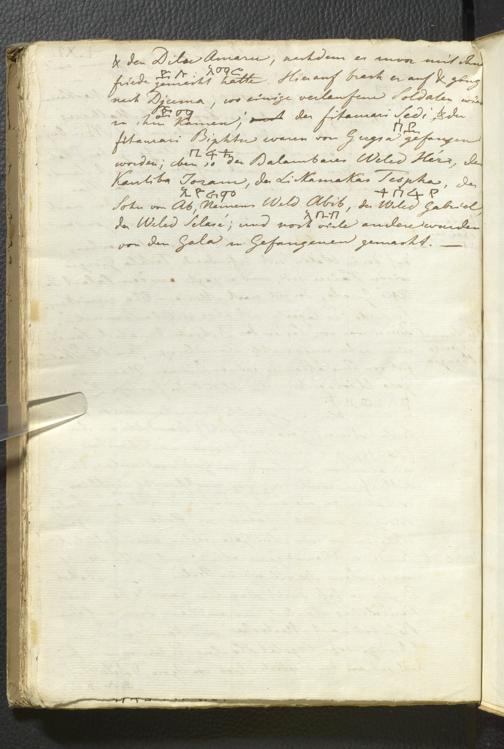 & den Dilae Amaru, nachdem er zuvor mit ihm
friede gemacht hatte. Hierauf brach er auf & gieng
nach Djuma, wo einige verlaufene Soldaten wieder
zu ihm kamen; der fitauari Sedi, & der
fitauari waren von Gugsa gefangen
worden; eben so der Balambaras Weled Héra, der
Kantiba Toram, der Likamakas Tespha, der
Sohn von Ab, Namens Weld Abib, der Weled Gabriel,
der Weled Selasé; und noch viele andere wurden
von den Gala zu Gefangenen gemacht. —